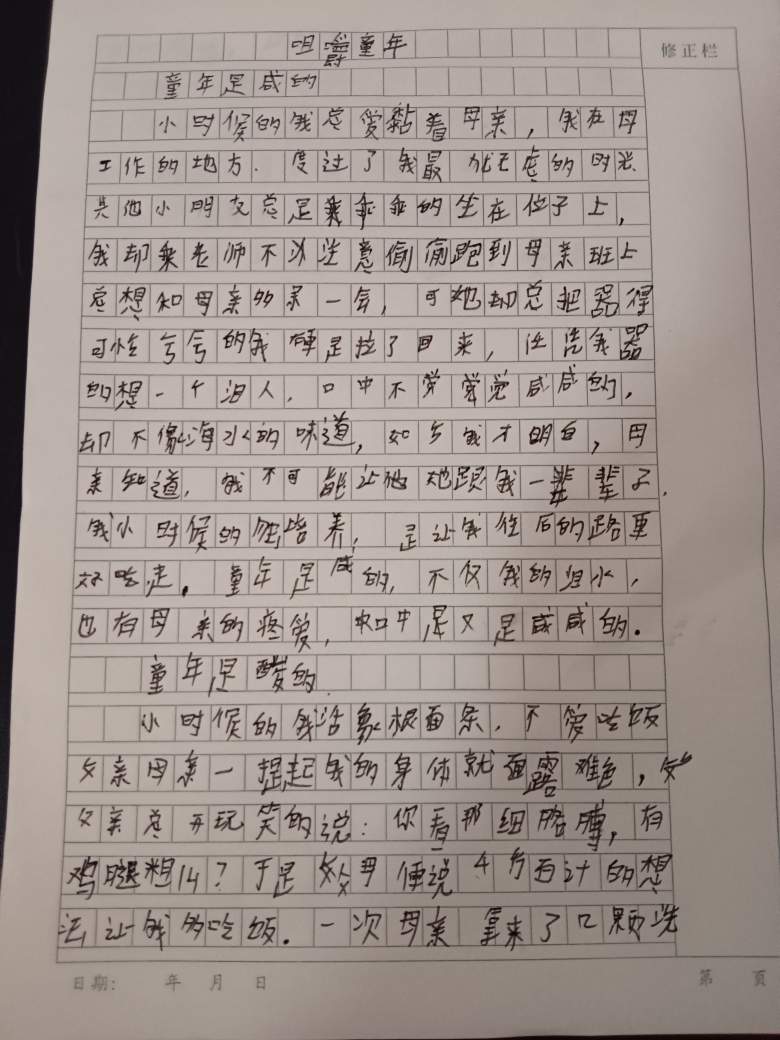 咀嚼童年
修正栏
童年是咸的
小时候的我总爱黏着母亲，我在母
工作的地方.度过了我最无虑的时光.
其他小朋友总是乖乖的坐在位子上，
我却乘老师不注意偷偷跑到母亲班上
总想和母亲多呆一会，可她却总把器得
可怜兮兮的我硬是拉了回来，任凭我器
的想一个泪人.口中不觉觉咸咸的,
却不像海水的味道，如今我才明白，母
亲知道，我不可能让她跟我一辈辈子.
我小时候的培养，是让我往后的路更
好吃走.童年是咸的,不仅我的泪水,
也有母亲的疼爱，口中是又是咸咸的.
童年是酸的
小时候的我活象根面条.不爱吃饭
父亲母亲一提起我的身体就面露难色，
父亲总开玩笑的说：你看那细胳膊，有
鸡腿粗吗？于是父母便说千方百计的想
法让我多吃饭.一次母亲拿来了口颗洗
日期： 年 月 日
第 页